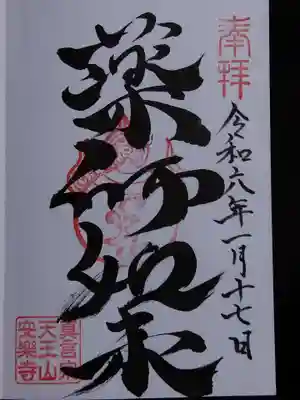 奉拝
令和六年一月十七日
薬師如来
真言宗
天王山
安樂寺